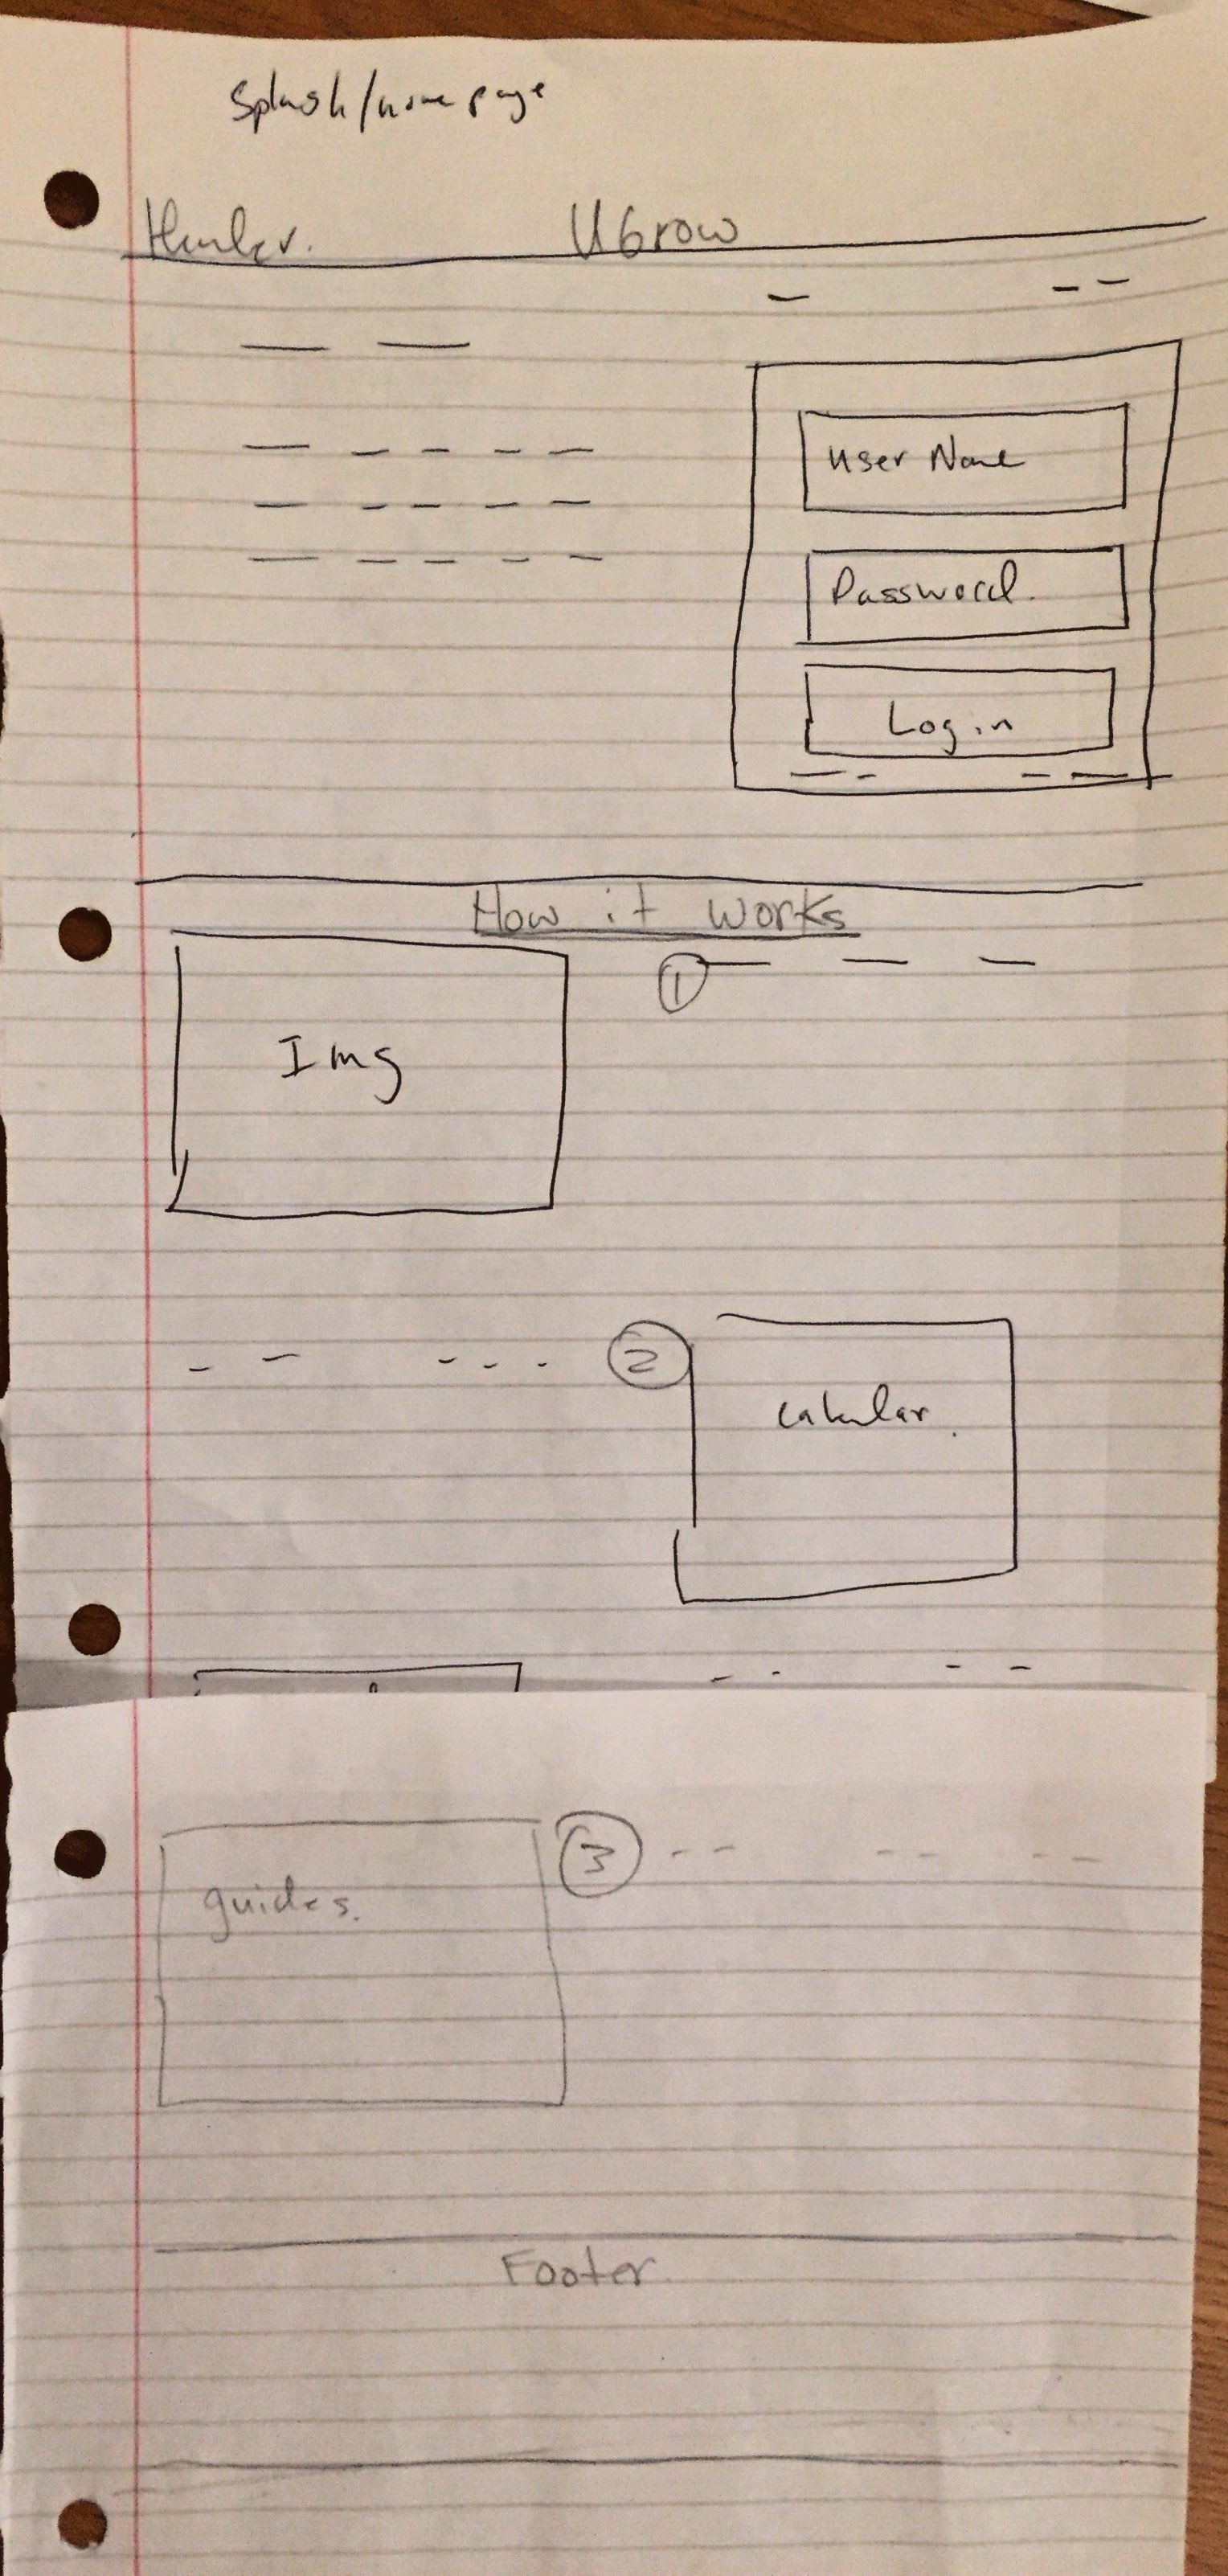 Splash/home page
Header. UGrow
User Name
Password.
Login
How it works
1
Img
2
calendar.
3
guides.
Footer